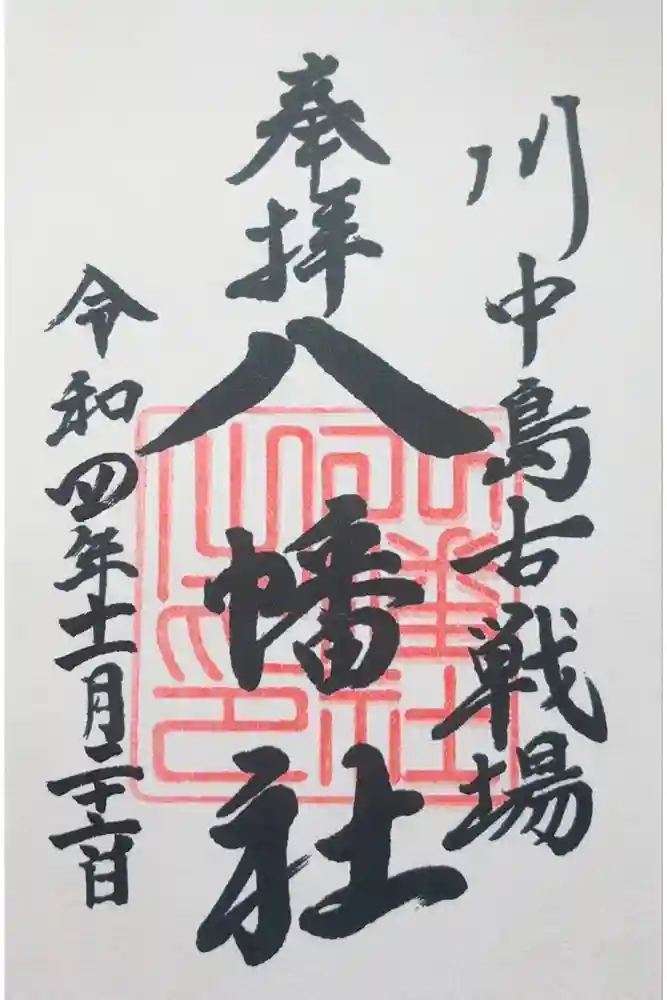 川中島古戦場
奉拝
八幡社
令和四年十一月二十六日